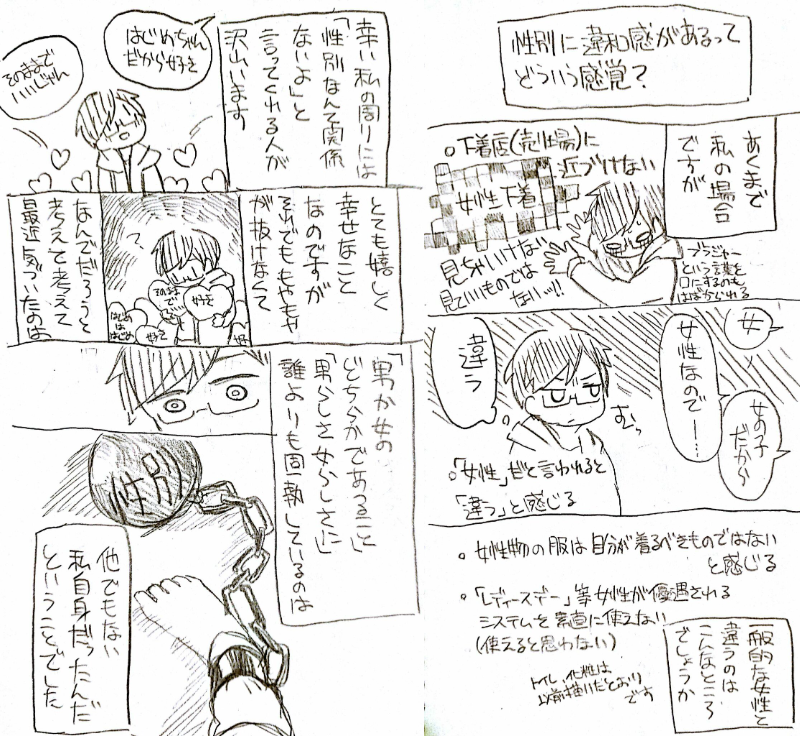 性別に違和感があるって
どういう感覚?
あくまで
私の場合
ですが
。下着店(売り場)に
近づけない
女性下着
見ちゃいけない
見ていいものでは
ないッ!!
ブラジャー
という言葉を
口にするのも
はばかられる
女
女性なので……
女の子
だから
違う
むっ
。「女性」だと言われると
「違う」と感じる
。女性物の服は自分が着るべきものではない
と感じる
。「レディースデー」等女性が優遇される
システムを素直に使えない
(使えると思わない)
トイレ、化粧は
以前描いたとおり
です
一般的な女性と
違うのは
こんなところ
でしょうか
幸い私の周りには
「性別なんて関係
ないよ」と
言ってくれる人が
沢山います
はじめちゃん
だから好き
そのままで
いいじゃん
とても嬉しく
幸せなこと
なのですが
それでももやもや
が抜けなくて
そのまま
で
好き
はじめ
は
はじめ
好き
なんでだろうと
考えて考えて
最近気づいたのは
「男か女の
どちらかであること」
「男らしさ女らしさに」
誰よりも固執しているのは
性別
他でもない
私自身だったんだ
ということでした